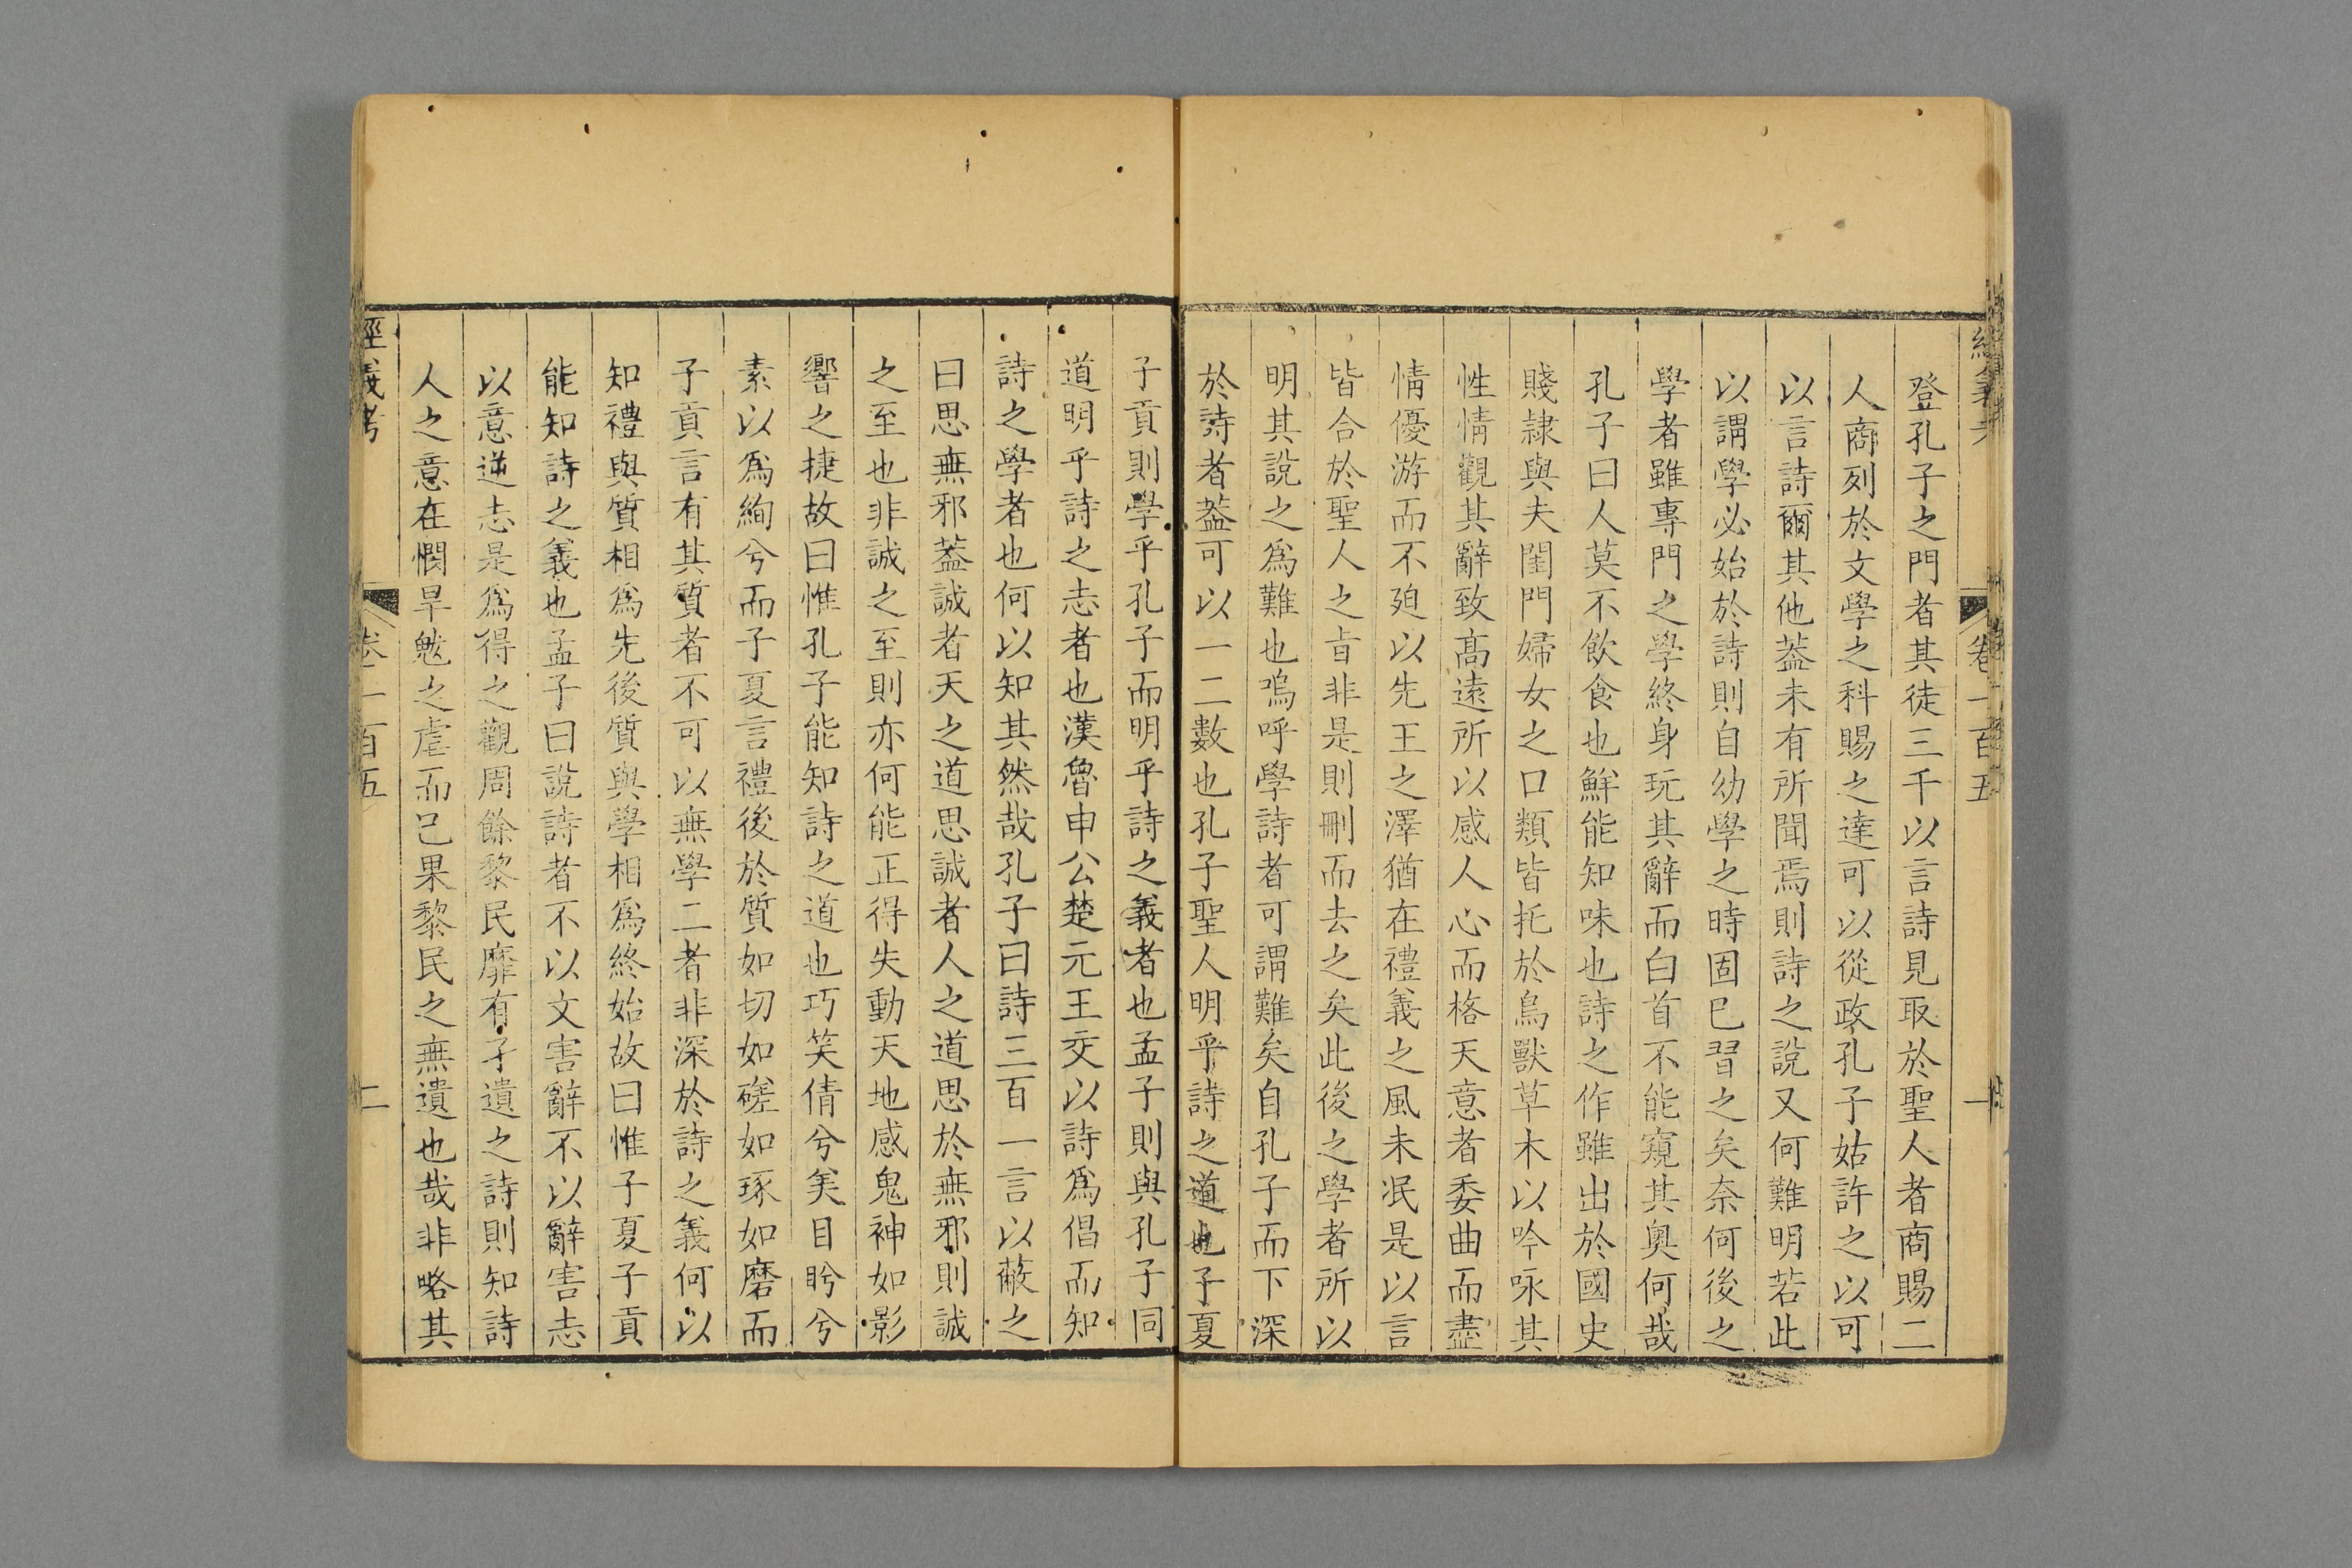 經義考 卷一百五 一
登孔子之門者其徒三千以言詩見取於聖人者商賜二
人商列於文學之科賜之達可以從政孔子姑許之以可
以言詩爾其他葢未有所聞焉則詩之說又何難明若此
以謂學必始於詩則自幼學之時固已習之矣奈何後之
學者雖專門之學終身玩其辭而白首不能窺其奧何哉
孔子曰人莫不飲食也鮮能知味也詩之作雖出於國史
賤隷與夫閨門婦女之口類皆托於鳥獸草木以吟咏其
性情觀其辭致髙遠所以感人心而格天意者委曲而盡
情優游而不廹以先王之澤猶在禮義之風未泯是以言
皆合於聖人之旨非是則刪而去之矣此後之學者所以
明其說之爲難也嗚呼學詩者可謂難矣自孔子而下深
於詩者葢可以一二數也孔子聖人明乎詩之道也子夏
子貢則學乎孔子而明乎詩之義者也孟子則與孔子同
道明乎詩之志者也漢魯申公楚元王交以詩爲倡而知
詩之學者也何以知其然哉孔子曰詩三百一言以蔽之
曰思無邪葢誠者天之道思誠者人之道思於無邪則誠
之至也非誠之至則亦何能正得失動天地感鬼神如影
響之捷故曰惟孔子能知詩之道也巧笑倩兮美目盻兮
素以爲絢兮而子夏言禮後於質如切如磋如琢如磨而
子貢言有其質者不可以無學二者非深於詩之義何以
知禮與質相爲先後質與學相爲終始故曰惟子夏子貢
能知詩之義也孟子曰說詩者不以文害辭不以辭害志
以意逆志是爲得之觀周餘黎民靡有孑遺之詩則知詩
人之意在憫旱魃之虐而已果黎民之無遺也哉非略其
經義考 卷一百五 二